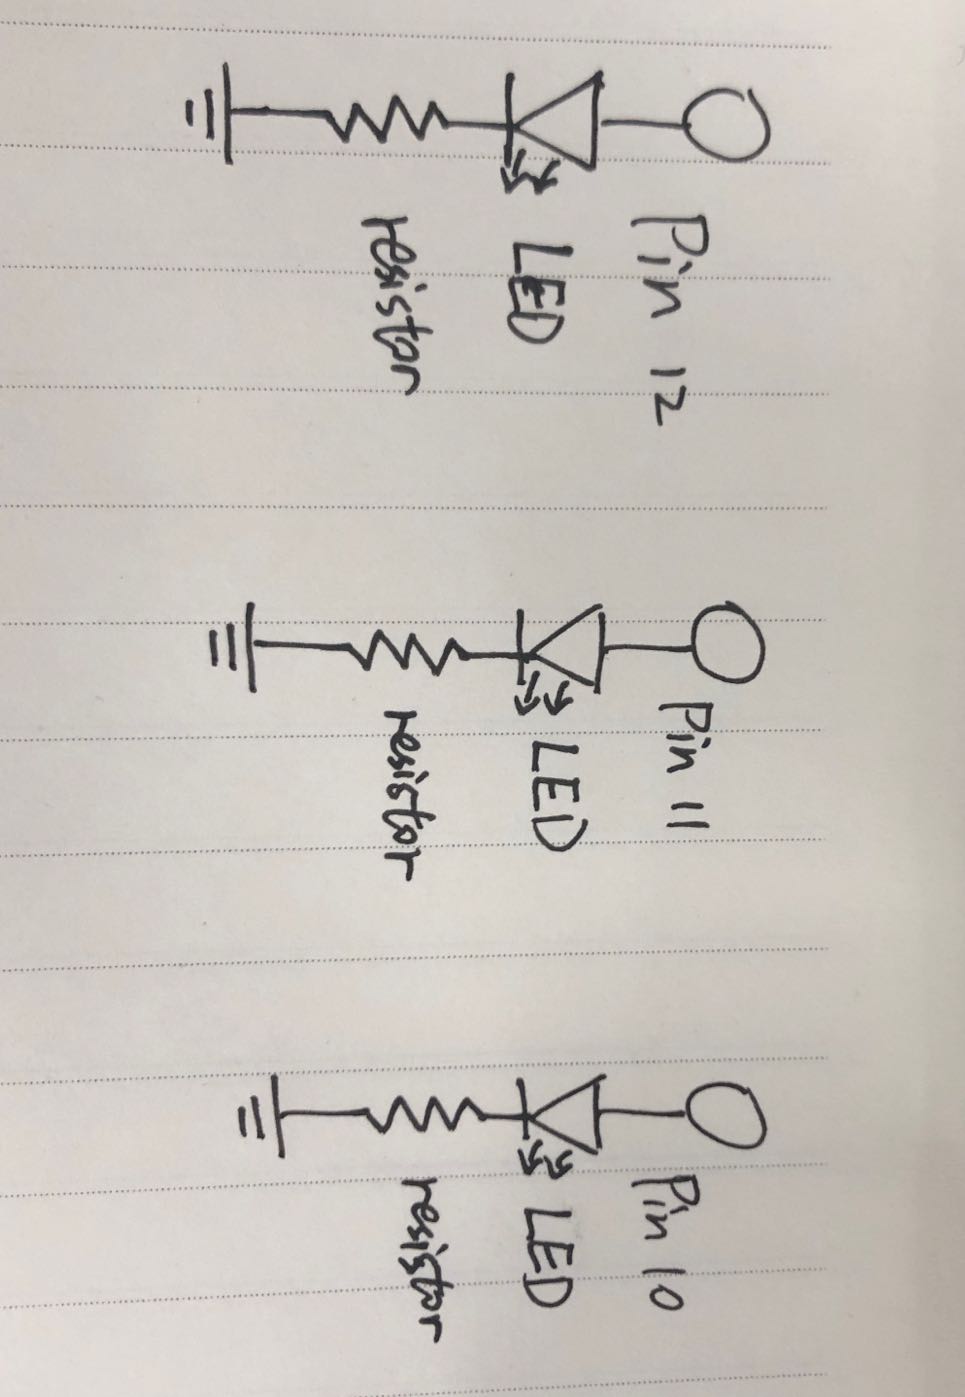 Pin 12
LED
resistor
Pin 11
LED
resistor
Pin 10
LED
resistor